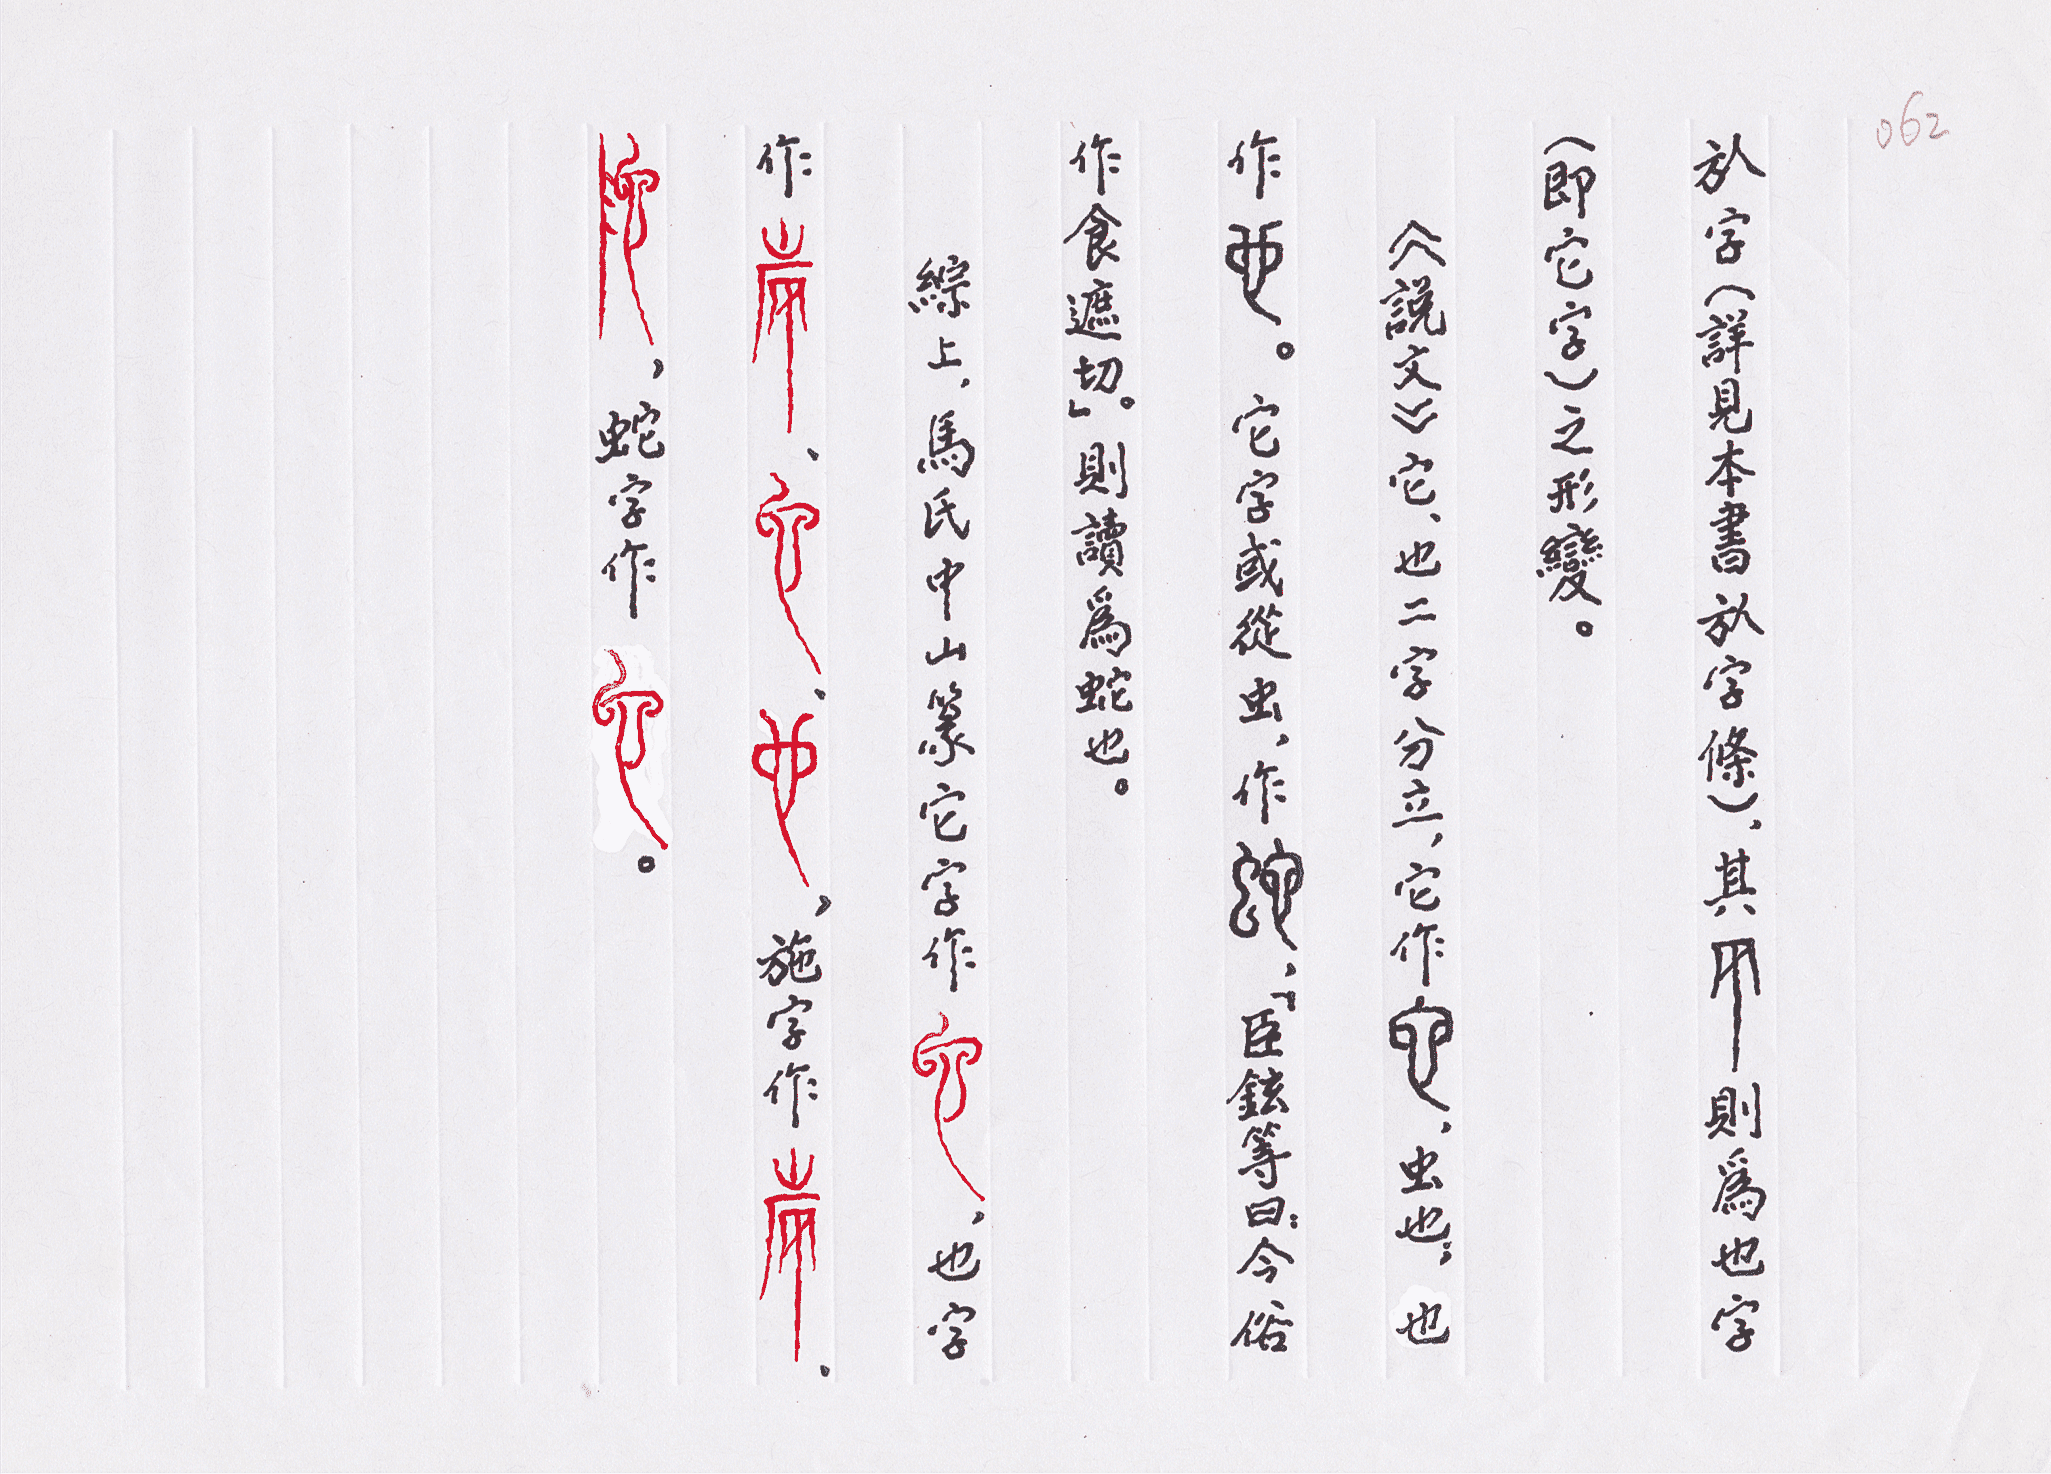 062
㫃字（詳見本書㫃字條），其則爲也字
（即它字）之形變。
《說文》它、也二字分立，它作，虫也；也
作。它字或從虫，作，「臣鉉等曰：今俗
作食遮切。」則讀爲蛇也。
綜上，馬氏中山篆它字作，也字
作、、，施字作、
，蛇字作。